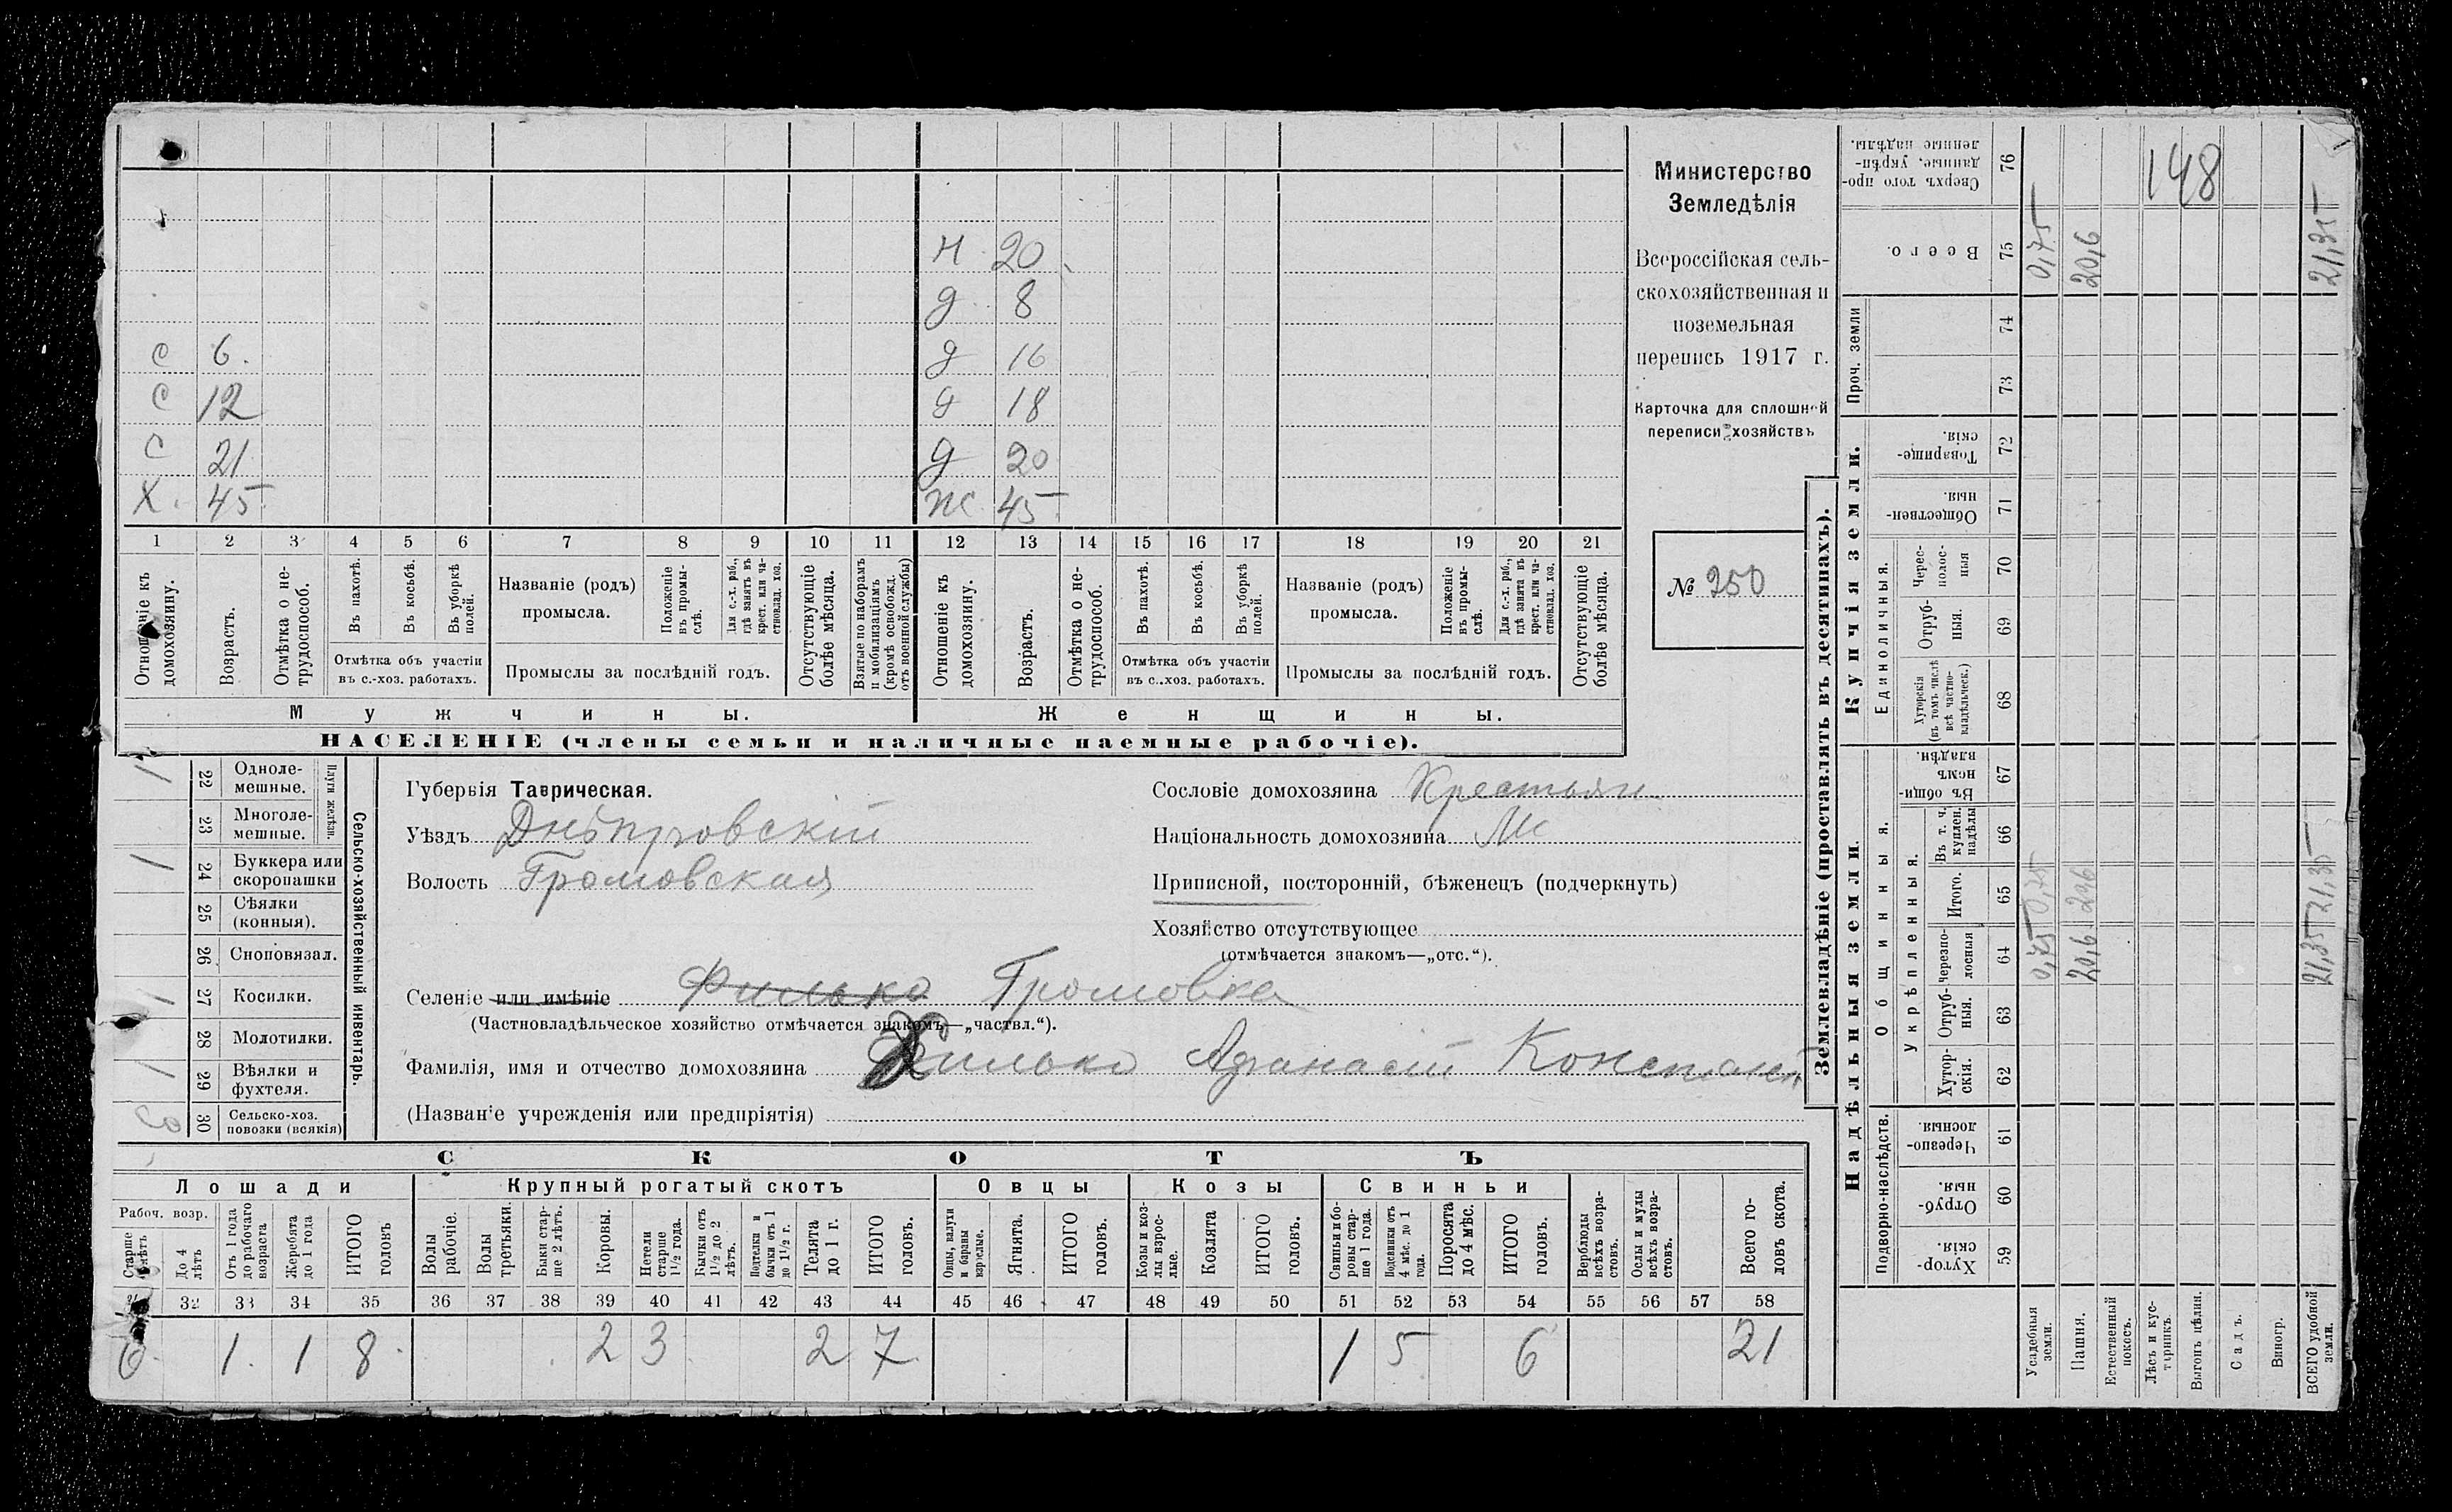 Министерство
Земледѣлія
Всероссійская сель-
скохозяйственная и
поземельная
перепись 1917 г.
Карточка для сплошной
переписи хозяйствъ
№ 250
Н 20
д 8
С 6. д 16
С 12 д 18
С 21 д 20
Х. 45 Ж 45
1 2 3 4 5 6 7 8 9 10 11 12 13 14 15 16 17 18 19 20 21
Отношеніе къ домохозяину.
Возрастъ.
Отмѣтка о не-трудоспособ.
Въ пахотѣ.
Въ косьбѣ.
Въ уборкѣ полей.
Отмѣтка объ участіи
въ с.-хоз. работахъ.
Названіе (родъ)
промысла.
Положеніе въ промы-слѣ.
Для с.-х. раб., гдѣ занятъ въ крест. или ча-стновлад. хоз.
Промыслы за послѣдній годъ.
Отсутствующіе болѣе мѣсяца.
Взятые по наборамъ и мобилизаціямъ (кромѣ освобожд. отъ военной службы)
Отношеніе къ домохозяину.
Возрастъ.
Отмѣтка о не-трудоспособ.
Въ пахотѣ.
Въ косьбѣ.
Въ уборкѣ полей.
Отмѣтка объ участіи
въ с.-хоз. работахъ.
Названіе (родъ)
промысла.
Положеніе въ промы-слѣ.
Для с.-х. раб., гдѣ занята въ крест. или ча-стновлад. хоз.
Промыслы за послѣдній годъ.
Отсутствующіе болѣе мѣсяца.
Мужчины. Женщины.
НАСЕЛЕНІЕ (члены семьи и наличные наемные рабочіе).
Сельско-хозяйственный инвентарь.
Плуги желѣзн.
1 22 Одноле-мешные.
23 Многоле-мешные.
1 24 Буккера или скоропашки
25 Сѣялки (конныя).
26 Сноповязал.
1 27 Косилки.
28 Молотилки.
1 29 Вѣялки и фухтеля.
30 Сельско-хоз. повозки (всякія)
Губернія Таврическая.
Уѣздъ Днѣпровскій
Волость Громовская
Сословіе домохозяина Крестьян
Національность домохозяина Мс
Приписной, посторонній, бѣженецъ (подчеркнуть)
Хозяйство отсутствующее
(отмѣчается знакомъ—„отс.“).
Селеніе или имѣніе Филько Громовка
(Частновладѣльческое хозяйство отмѣчается знакомъ—„частвл.“).
Фамилія, имя и отчество домохозяина Филько Афанасій Константин
(Названіе учрежденія или предпріятія)
СКОТЪ
Лошади Крупный рогатый скотъ Овцы Козы Свиньи
Рабоч. возр.
Старше 4 лѣтъ
До 4 лѣтъ
Отъ 1 года до рабочаго возраста
Жеребята до 1 года
ИТОГО головъ
Волы рабочіе.
Волы третьяки.
Быки стар-ше 2 лѣтъ.
Коровы.
Нетели старше 1½ года.
Бычки отъ 1½ до 2 лѣтъ.
Подтелки и бычки отъ 1 до 1½ г.
Телята до 1 г.
ИТОГО головъ.
Овцы, валухи и бараны взрослые.
Ягнята.
ИТОГО головъ.
Козы и коз-лы взрос-лые.
Козлята
ИТОГО головъ.
Свиньи и бо-ровы стар-ше 1 года.
Подсвинки отъ 4 мѣс. до 1 года.
Поросята до 4 мѣс.
ИТОГО головъ.
Верблюды всѣхъ возра-стовъ.
Ослы и мулы всѣхъ возра-стовъ.
Всего го-ловъ скота.
31 32 33 34 35 36 37 38 39 40 41 42 43 44 45 46 47 48 49 50 51 52 53 54 55 56 57 58
6. 1. 1 8. 2 3 2 7 1 5 6 21
Землевладѣніе (проставлять въ десятинахъ).
Надѣльныя земли. Купчія земли.
Проч. земли
Подворно-наслѣдств.
Общинныя.
Укрѣпленныя.
Единоличныя.
76 Сверхъ того про-данные, укрѣп-ленные надѣлы. 148
75 Всего. 0,75 20,6 21,35
74
73
72 Товарище-скія.
71 Обществен-ныя.
70 Черес-полос-ныя
69 Отруб-ныя.
68 Хуторскія (въ томъ числѣ всѣ частно-владѣльческ.)
67 Въ общи-номъ владѣн.
66 Въ т. ч. куплен. надѣлы
65 Итого. 0,75 20,6 21,35
64 Черезпо-лосныя 0,75 20,6 21,35
63 Отруб-ныя.
62 Хутор-скія.
61 Черезпо-лосныя
60 Отруб-ныя.
59 Хутор-скія.
Усадебныя земли.
Пашня.
Естественный покосъ.
Лѣсъ и кус-тарникъ.
Выгонъ цѣлин.
Садъ.
Виногр.
ВСЕГО удобной земли.